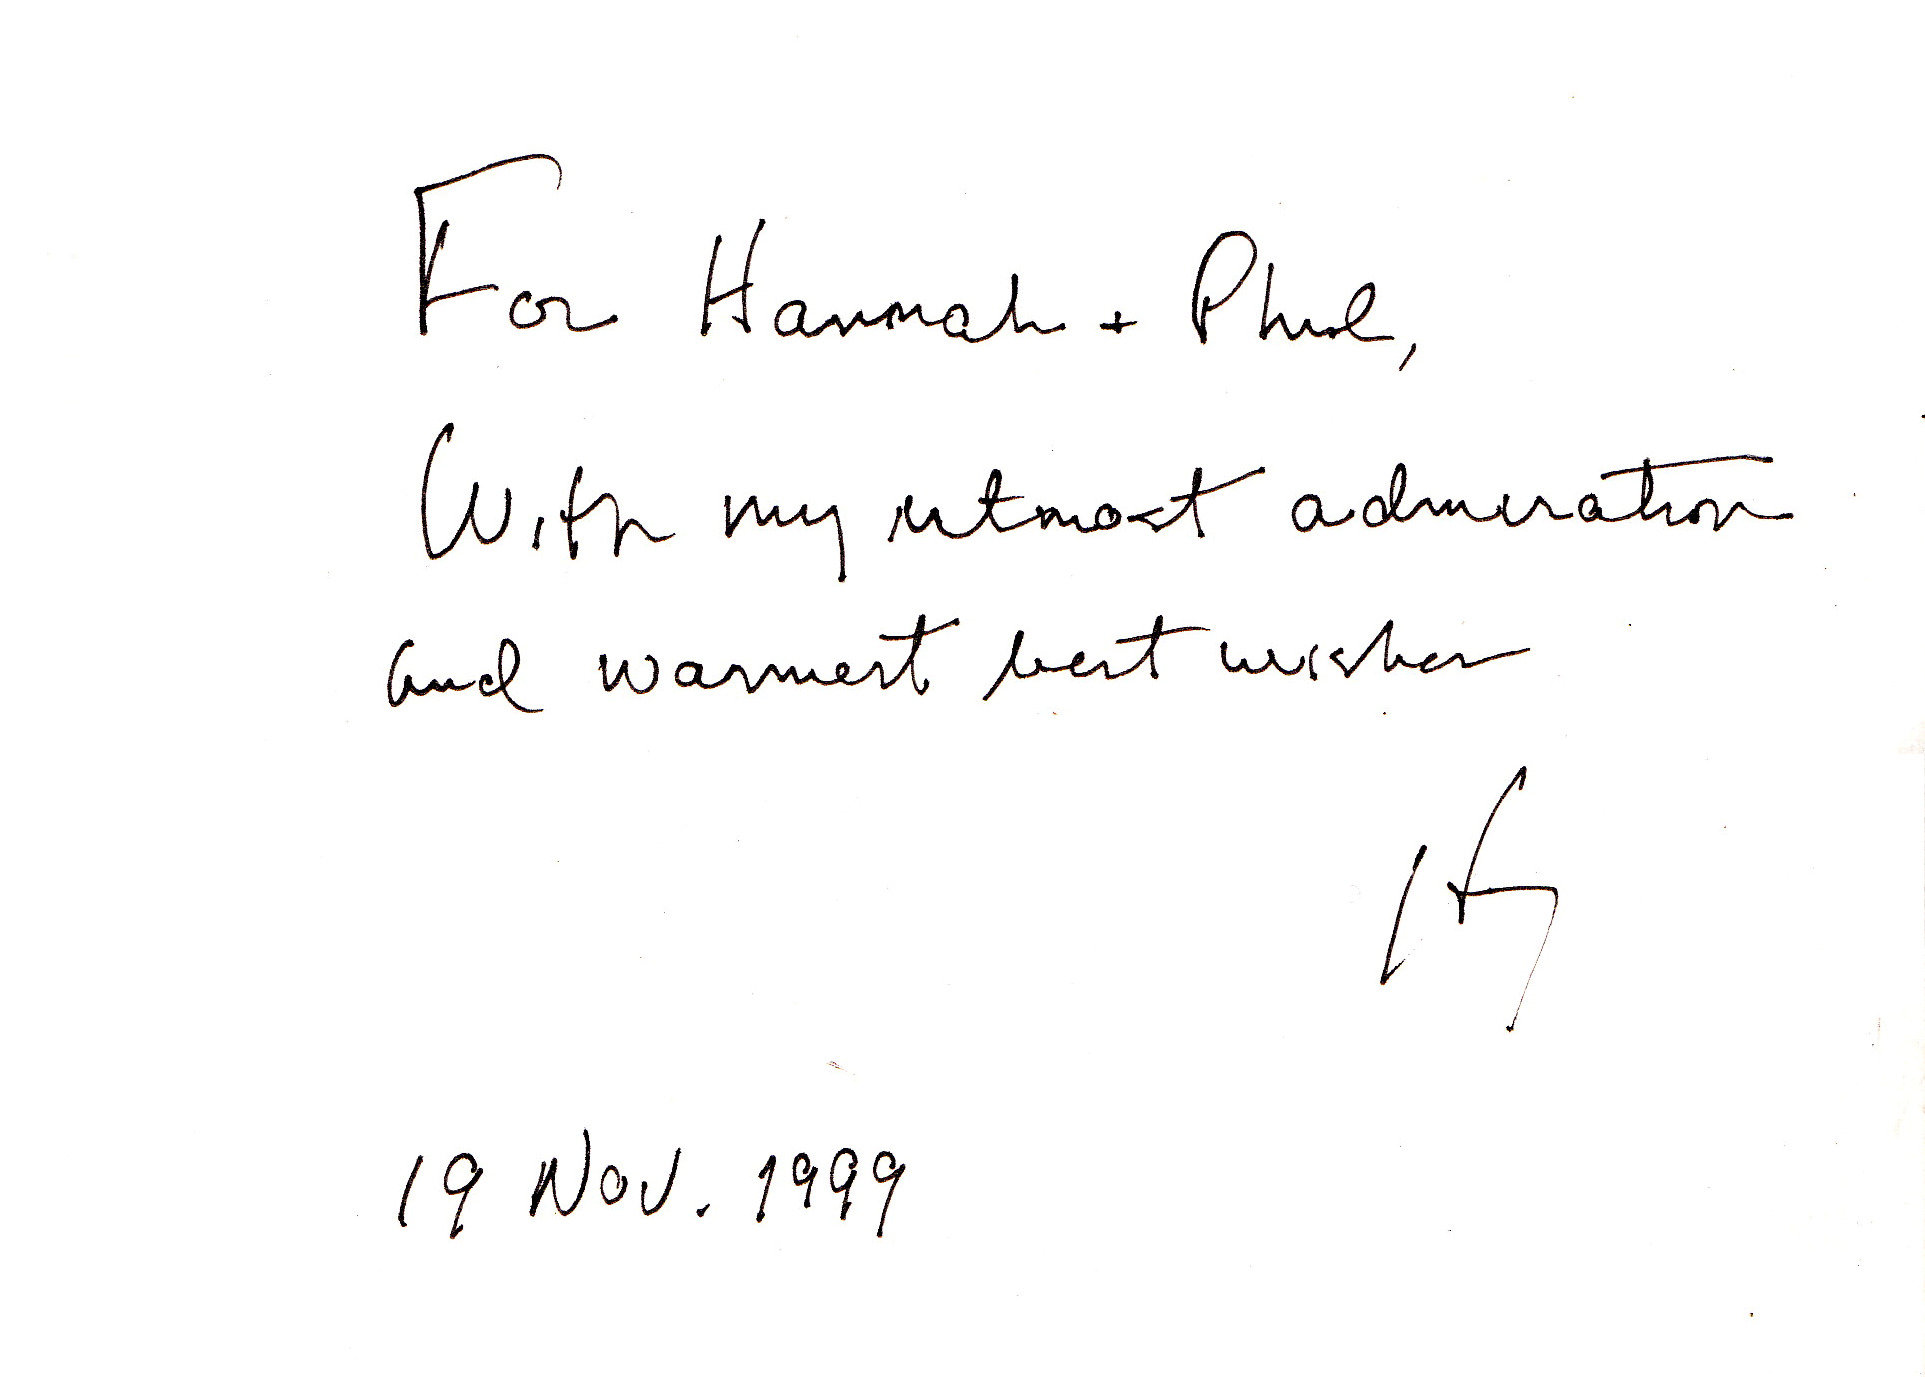 For Hannah + Phil,
With my utmost admiration
and warmest best wishes
19 Nov. 1999